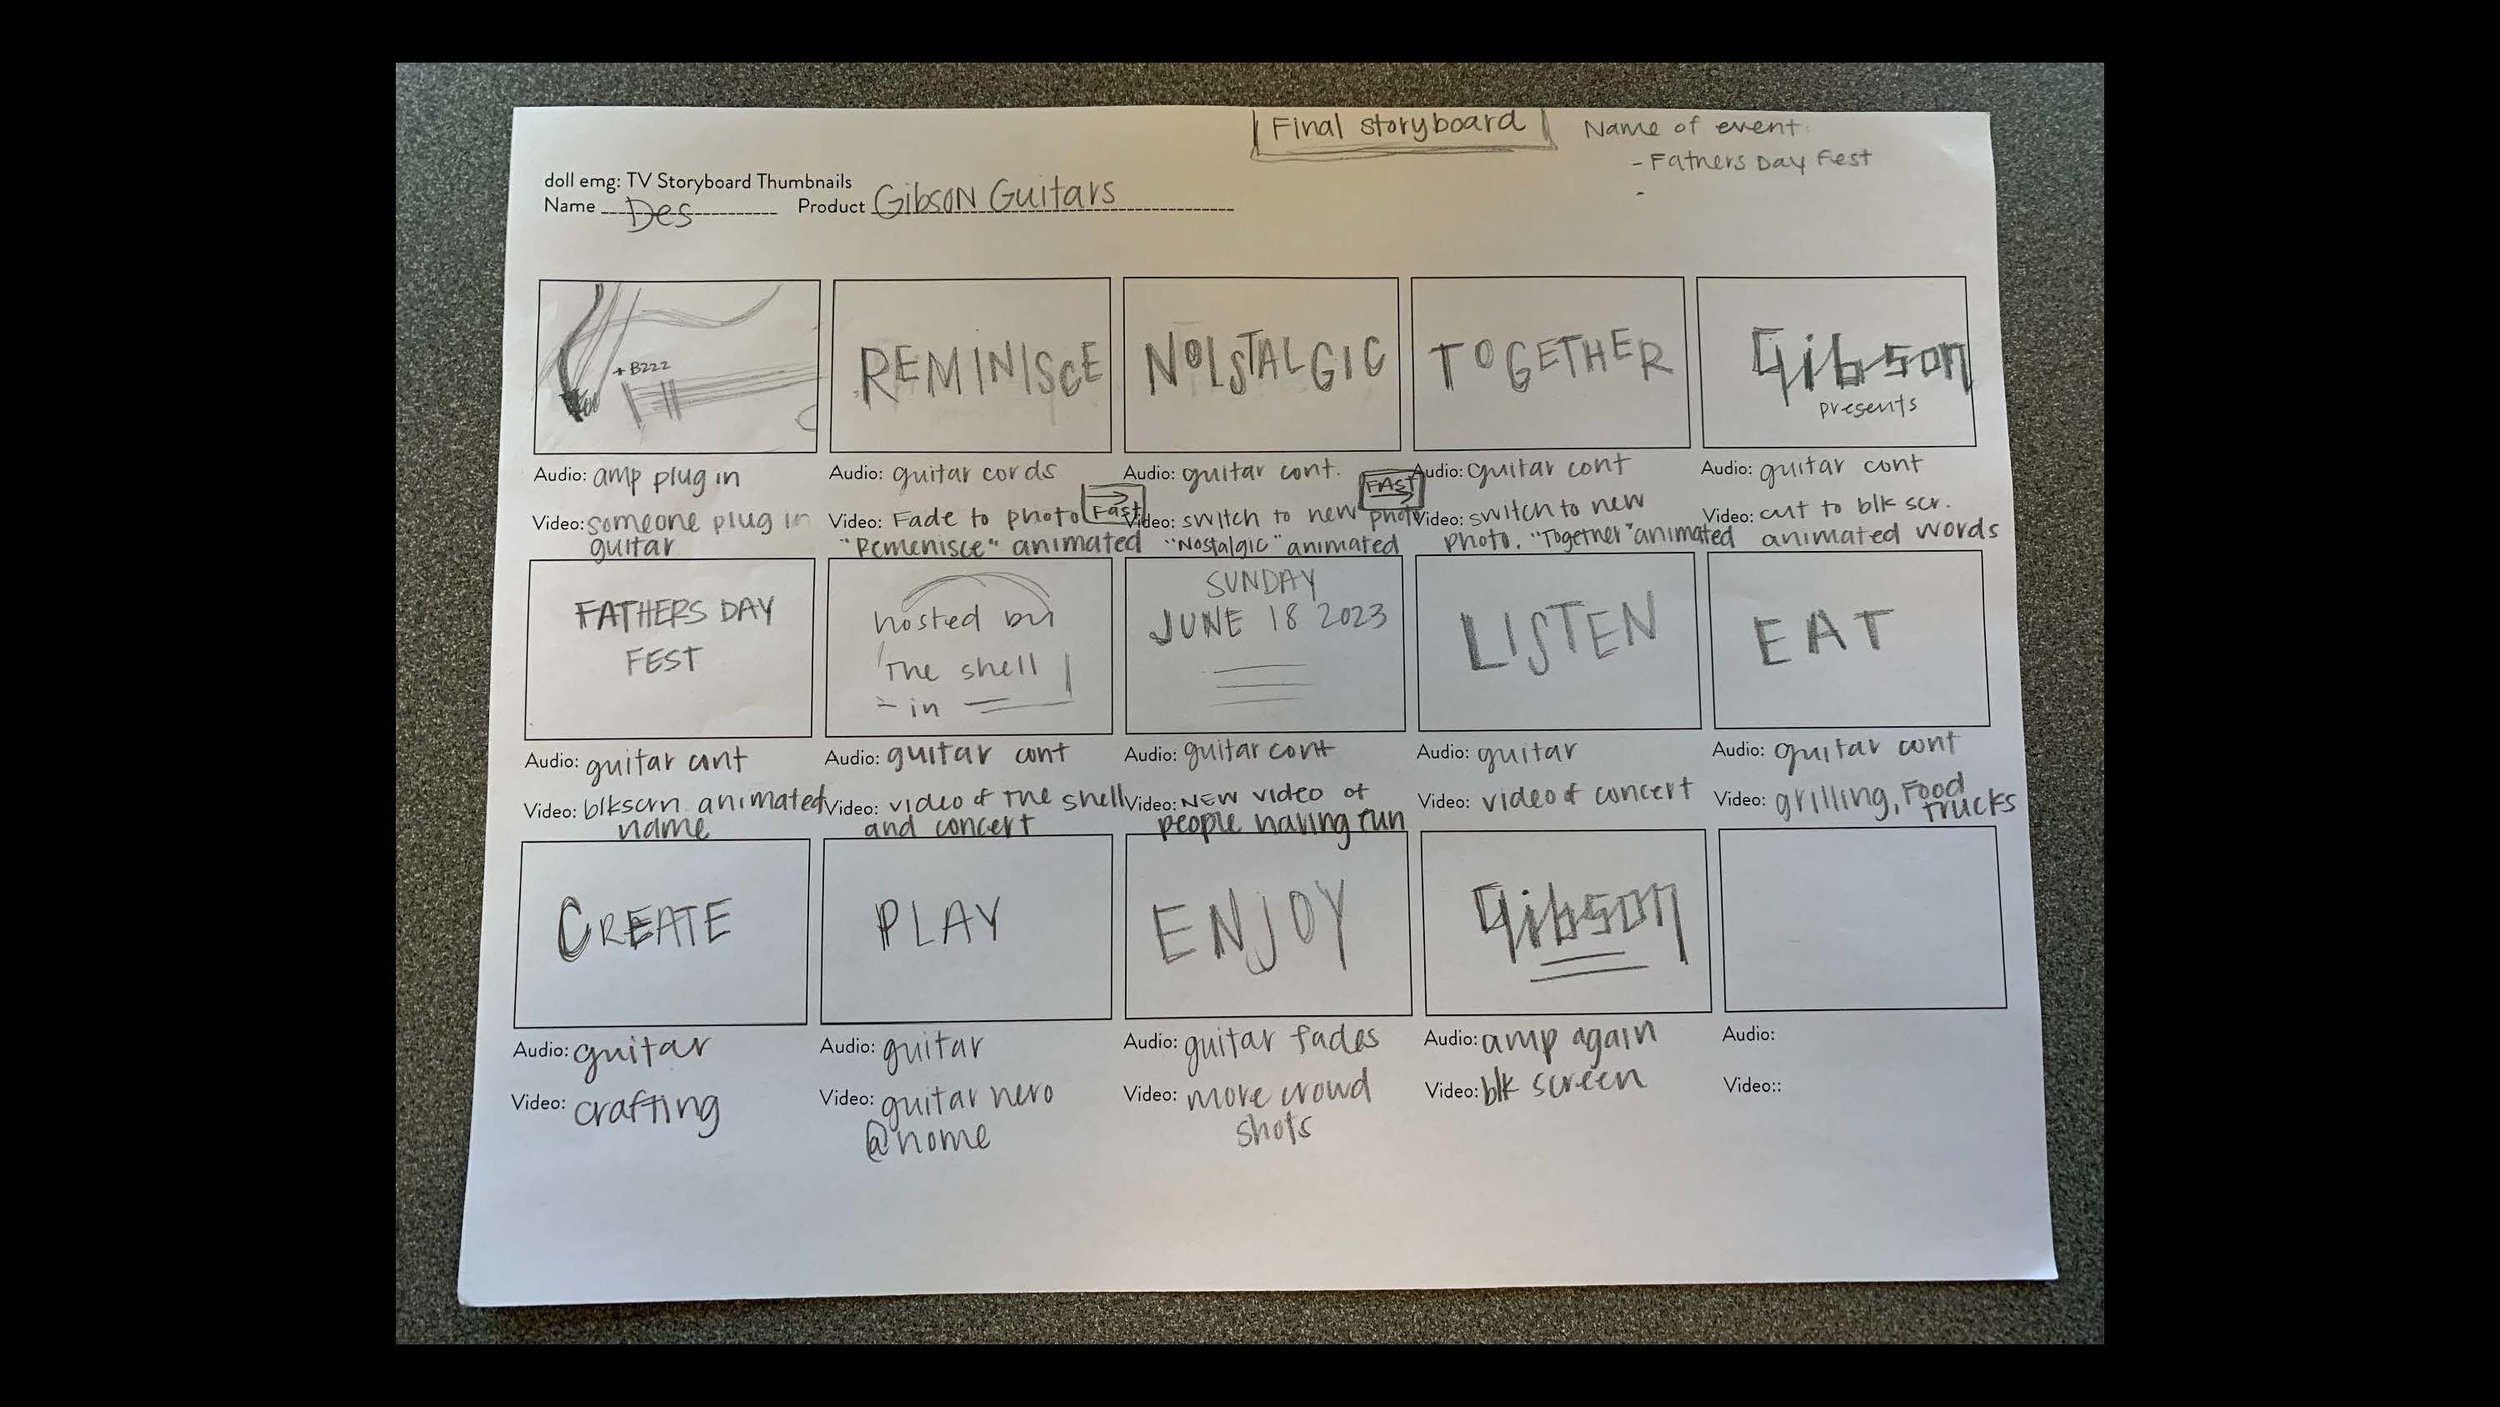 Final storyboard
Name of event:
- Fathers Day Fest
-
doll emg: TV Storyboard Thumbnails
Name Des Product Gibson Guitars
* Bzzz
REMINISCE
NOLSTALGIC
TOGETHER
Gibson
presents
Audio: amp plug in
Video: someone plug in
guitar
Audio: guitar cords
Video: Fade to photo
Fast
"Remenisce" animated
Audio: guitar cont.
FAST
Video: switch to new photo
"Nostalgic" animated
Audio: guitar cont
Video: switch to new
photo. "Together" animated
Audio: guitar cont
Video: cut to blk scr.
animated words
FATHERS DAY
FEST
hosted by
The shell
- in
SUNDAY
JUNE 18 2023
LISTEN
EAT
Audio: guitar cont
Video: blkscrn animated
name
Audio: guitar cont
Video: video of The shell
and concert
Audio: guitar cont
Video: NEW video of
people having fun
Audio: guitar
Video: video of concert
Audio: guitar cont
Video: grilling, Food
trucks
CREATE
PLAY
ENJOY
Gibson
Audio: guitar
Video: crafting
Audio: guitar
Video: guitar hero
@home
Audio: guitar fades
Video: more crowd
shots
Audio: amp again
Video: blk screen
Audio:
Video::